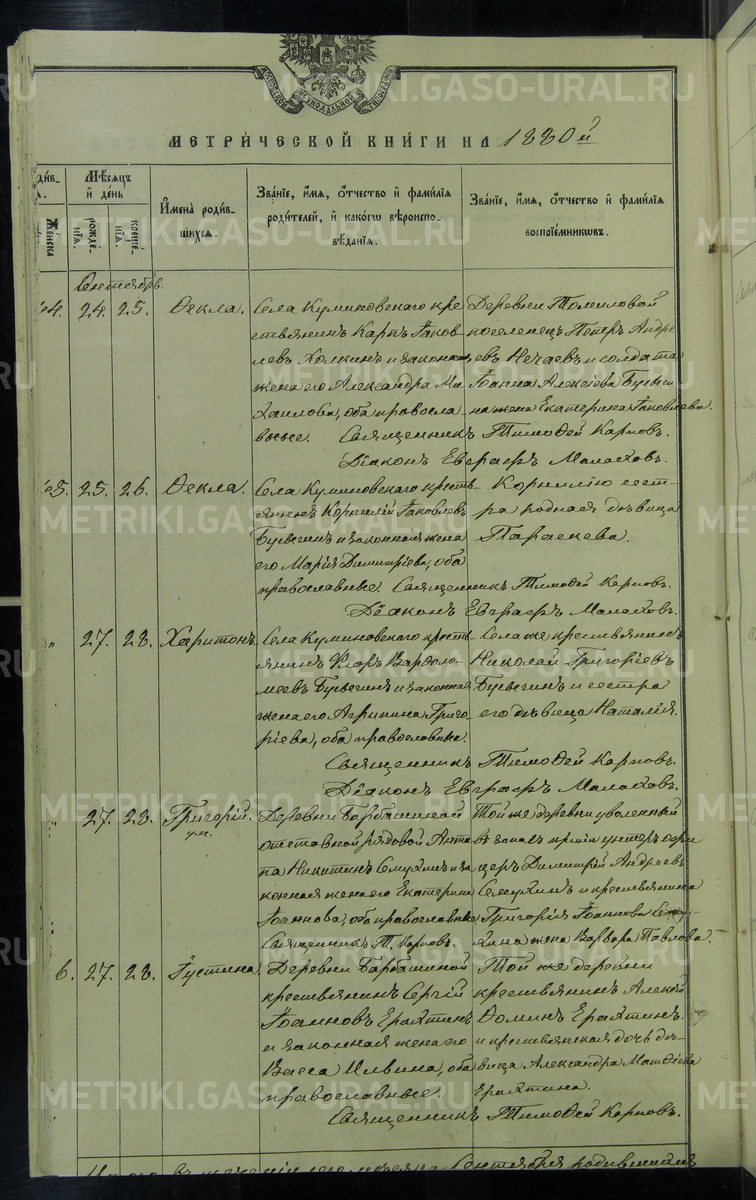 МОСКОВСКОЙ СѴНОДАЛЬНОЙ ТИПОГРАФІИ
МЕТРИ́ЧЕСКОЙ КНИ́ГИ НА 1880й
Мѣсяцъ и день
рожде-нія.
креще-нія.
Имена родив-
шихся.
Званіе, имя, отчество и фамилія
родителей, и какогѡ вѣроиспо-
вѣданія.
Званіе, имя, отчество и фамилія
воспріемникѡвъ.
Женска
Сентябрь.
44. 24. 25. Ѳекла.
Села Куминовскаго кре-
стьянинъ Карпъ Іаков-
левъ Холкинъ и законная
жена его Александра Ми-
хаилова, оба правосла-
вные.
Деревни Томиловой
поселенецъ Петръ Андре-
евъ Нечаевъ и солдата
Іоанна Алексіева
жена Екатерина Іаковлева.
Священникъ Тимоѳей Карповъ.
Діаконъ Евграфъ Малаховъ.
45. 25. 26. Ѳекла.
Села Куминовскаго кресть-
янинъ Корнилій Іаковлевъ
и законная жена
его Марія Димитріева, оба
православные.
Корнилію сест-
ра родная дѣвица
Параскева.
Священникъ Тимоѳей Карповъ.
Діаконъ Евграфъ Малаховъ.
" 27. 28. Харитонъ.
Села Куминовскаго кресть-
янинъ Флоръ Варѳоло-
меевъ и законная
жена его Агрипина Григо-
ріева, оба православные.
Села же крестьянинъ
Николай Григоріевъ
и сестра
его дѣвица Наталія.
Священникъ Тимоѳей Карповъ.
Діаконъ Евграфъ Малаховъ.
27. 28. Григорій.
ум.
Деревни Барбашиной
отставной рядовой
Никитинъ Семухинъ и за-
конная жена его Екатерина
Іоаннова, оба православные
Священникъ Т. Карповъ.
Той же деревни уволенный
въ запасъ арміи унтеръ офи-
церъ Димитрій Андреевъ
Семухинъ и крестьянина
Григорія Іоаннова Сему-
хина жена Варвара Павлова.
6. 27. 28. Іустина.
Деревни Барбашиной
крестьянинъ Сергій
Іоанновъ Ерахтинъ
и законная жена его
Васса Ильина, оба
православные.
Той же деревни
крестьянинъ Алексій
Ѳоминъ Ерахтинъ
и крестьянская дочь дѣ-
вица Александра Матѳіева
Ерахтина.
Священникъ Тимоѳей Карповъ.
Итого въ теченіи сего мѣсяца Сентября родившихся
METRIKI.GASO-URAL.RU